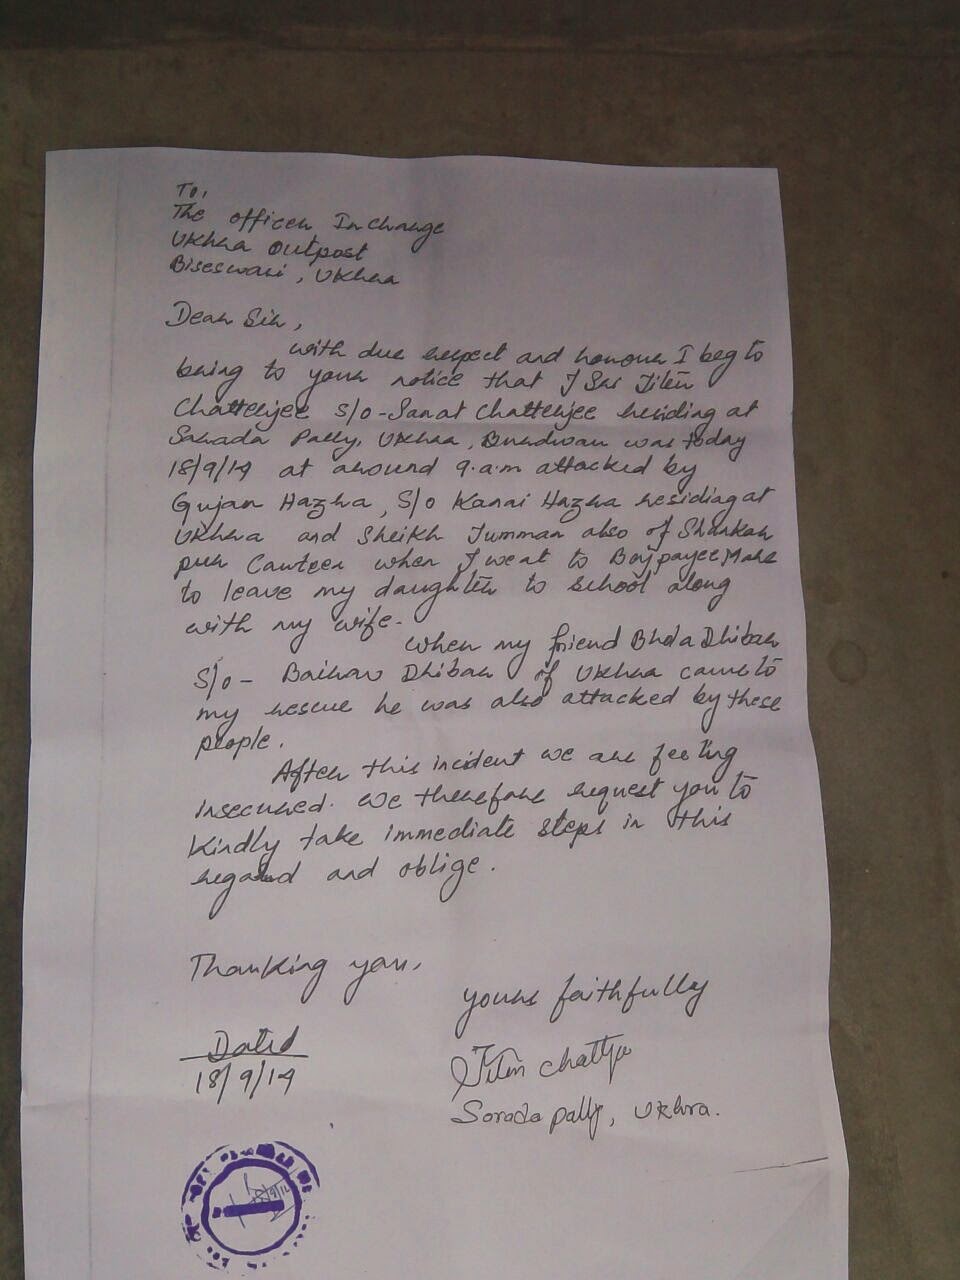 To,
The Officer In Charge
Ukhra Outpost
Biseswari, Ukhra
Dear Sir,
with due respect and honour I beg to
bring to your notice that I Sri Jiten
Chatterjee S/o - Sanat Chatterjee residing at
Sarada Pally, Ukhra, Burdwan was today
18/9/14 at around 9.a.m attacked by
Gujan Hazra, S/o Kanai Hazra residing at
Ukhra and Sheikh Jumman also of Shankar
pur Canteen when I went to Bajpayee More
to leave my daughter to school along
with my wife.
When my friend Bhola Dhibar
S/o - Dhibar of Ukhra came to
my rescue he was also attacked by these
people.
After this incident we are feeling
insecured. We therefore request you to
kindly take immediate steps in this
regard and oblige.
Thanking you,
yours faithfully
Dated
18/9/14
Jiten
Sorada pally, Ukhra.